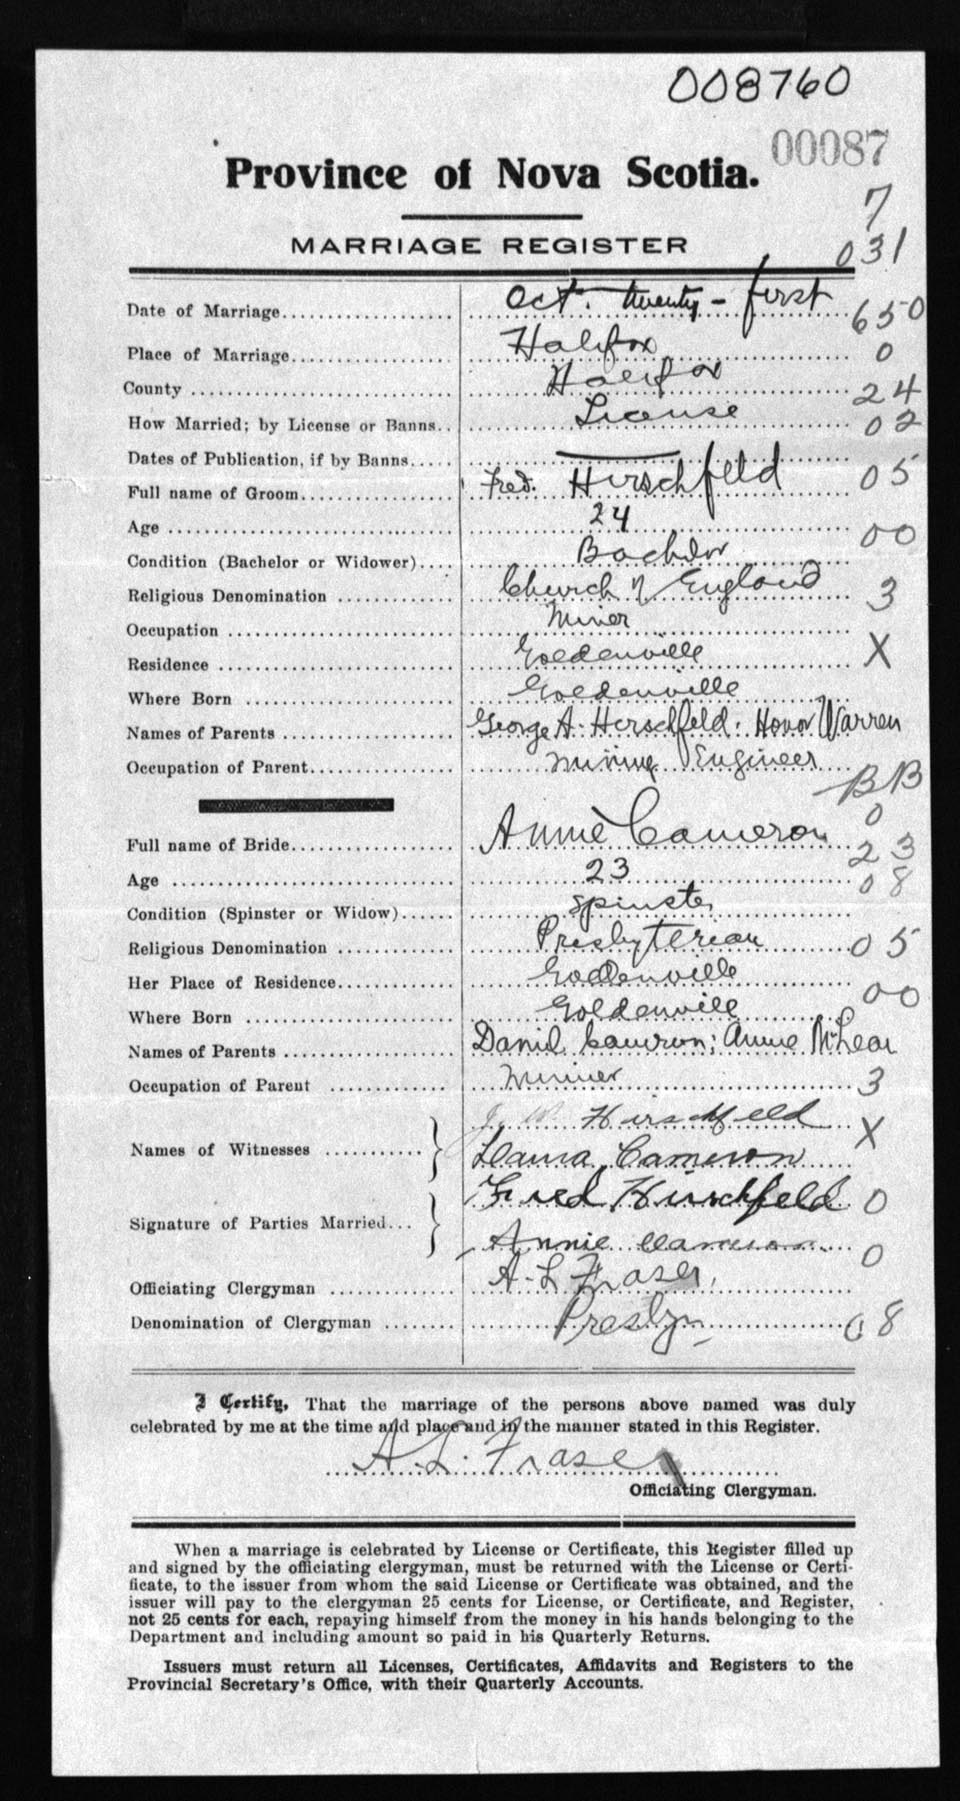 008760
00087
Province of Nova Scotia.
7
MARRIAGE REGISTER
031
Date of Marriage Oct. twenty-first
650
Place of Marriage Halifax
0
County Halifax
24
How Married; by License or Banns License
02
Dates of Publication, if by Banns
Full name of Groom Fred. Hirschfeld
05
Age 24
00
Condition (Bachelor or Widower) Bachelor
Religious Denomination Church of England
3
Occupation Miner
Residence Goldenville
X
Where Born Goldenville
Names of Parents George A. Hirschfeld. Honor Warren
Occupation of Parent Mining Engineer
BB
0
Full name of Bride Annie Cameron
23
Age 23
08
Condition (Spinster or Widow) Spinster
Religious Denomination Presbyterian
05
Her Place of Residence Goldenville
00
Where Born Goldenvill
Names of Parents Daniel Cameron; Annie McLean
Occupation of Parent Miner
3
Hirschfeld
X
Names of Witnesses
Laura Cameron
Fred Hirschfeld
0
Signature of Parties Married
Annie Cameron
0
Officiating Clergyman A. L. Fraser.
Denomination of Clergyman Presbyn
08
I Certify, That the marriage of the persons above named was duly
celebrated by me at the time and place and in the manner stated in this Register.
A. L. Fraser
Officiating Clergyman.
When a marriage is celebrated by License or Certificate, this Register filled up
and signed by the officiating clergyman, must be returned with the License or Certi-
ficate, to the issuer from whom the said License or Certificate was obtained, and the
issuer will pay to the clergyman 25 cents for License, or Certificate, and Register,
not 25 cents for each, repaying himself from the money in his hands belonging to the
Department and including amount so paid in his Quarterly Returns.
Issuers must return all Licenses, Certificates, Affidavits and Registers to the
Provincial Secretary's Office, with their Quarterly Accounts.